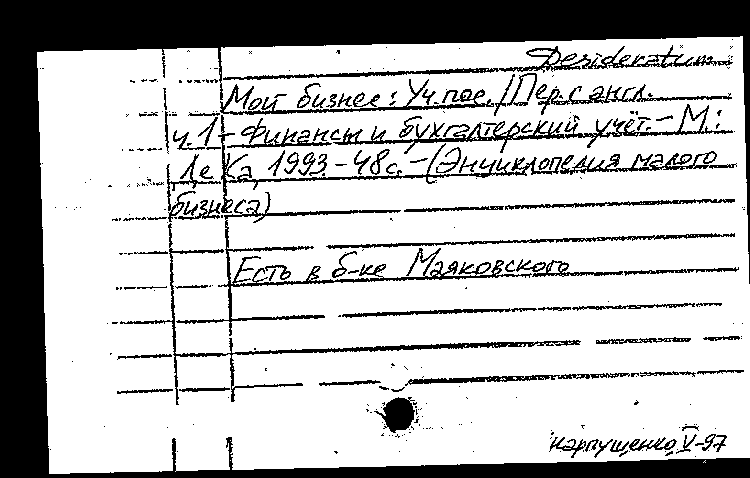 Desideratum
Мой бизнес: Уч.пос./Пер.с англ.
ч.1 - Финансы и бухгалтерский учёт. - М.:
ДеКа, 1993. - 48с. - (Энциклопедия малого
бизнеса)
Есть в б-ке Маяковского
Карпущенко, V-97